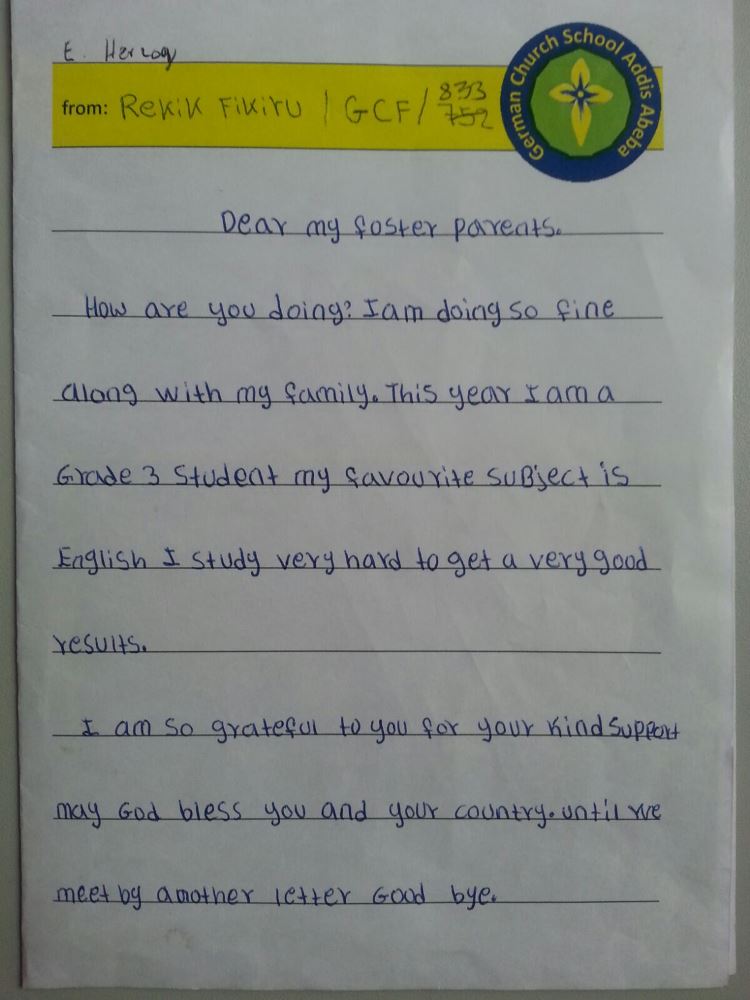 E. Herzog
from: Rekik Fikiru / GCF / 833
752
German Church School Addis Abeba
Dear my foster parents.
How are you doing? I am doing so fine
along with my family. This year I am a
Grade 3 Student my favourite suBject is
English I study very hard to get a very good
results.
I am so grateful to you for your kind support
may God bless you and your country. until we
meet by another letter Good bye.